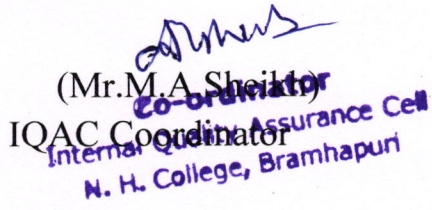 (Mr.M.A.Sheikh)
Co-ordinator
IQAC Coordinator
Internal Quality Assurance Cell
N. H. College, Bramhapuri